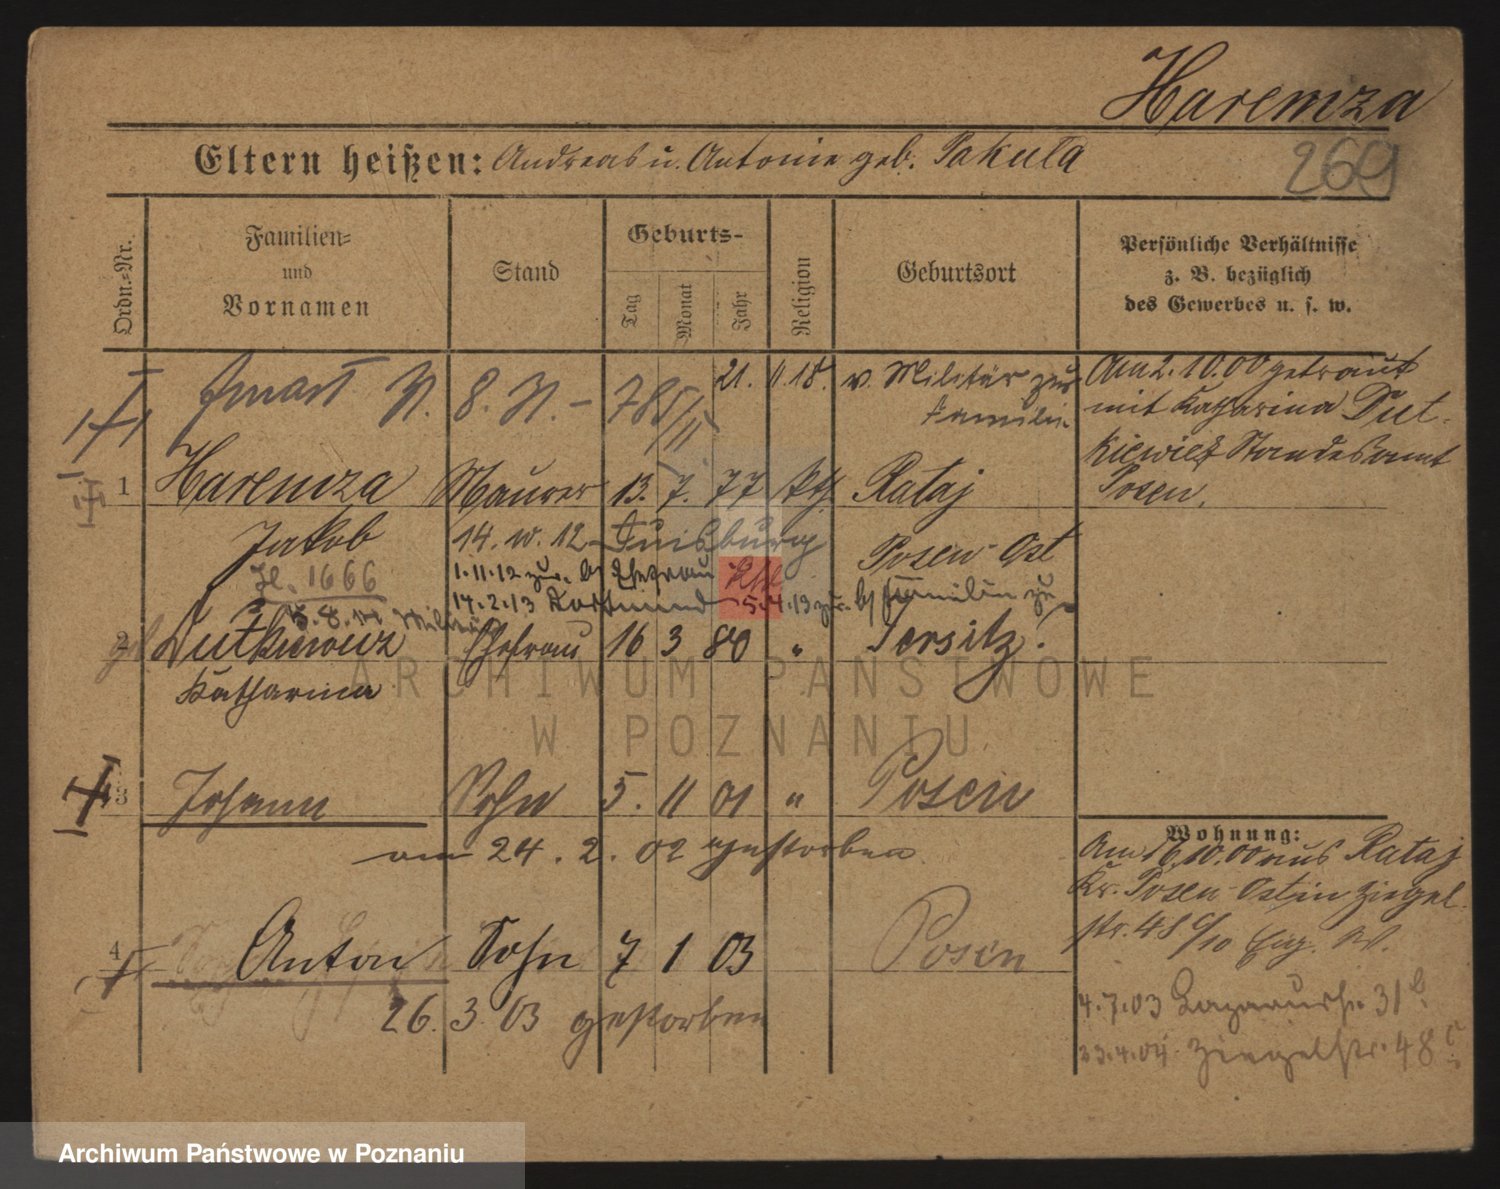 Haremza
Eltern heißen: Andreas u. Antonie geb. Pakuła
269
Ordn.-Nr.
Familien-
und
Vornamen
Stand
Geburts-
Tag
Monat
Jahr
Religion
Geburtsort
Persönliche Verhältnisse
z. B. bezüglich
des Gewerbes u. s. w.
21. 11 18. v. Militär zur
Familie
Am 2. 10. 00 getraut
mit Katharina Dut-
kiewicz Standesamt
Posen.
1 Haremza Maurer 13. 7. 77 kth. Rataj
Jakob 14. 10. 12 Duisburg Posen-Ost
1666
1. 11. 12 zur. b/ Ehefrau
14. 2. 13 Dortmund 5. 4. 13 zur. b/ Familie
2 Dutkiewicz Ehefrau 16 3 80 " Jersitz
Katharina
3 Johann Sohn 5. 11 01 " Posen
am 24. 2. 02 gestorben
4 Anton Sohn 7 1 03 Posen
26. 3. 03 gestorben
Wohnung:
Am 16. 10. 00 aus Rataj
Kr. Posen-Ost in Ziegel-
str. 48
4. 7. 03 31
23. 4. 04. Ziegelstr. 48
ARCHIWUM PAŃSTWOWE
W POZNANIU
Archiwum Państwowe w Poznaniu